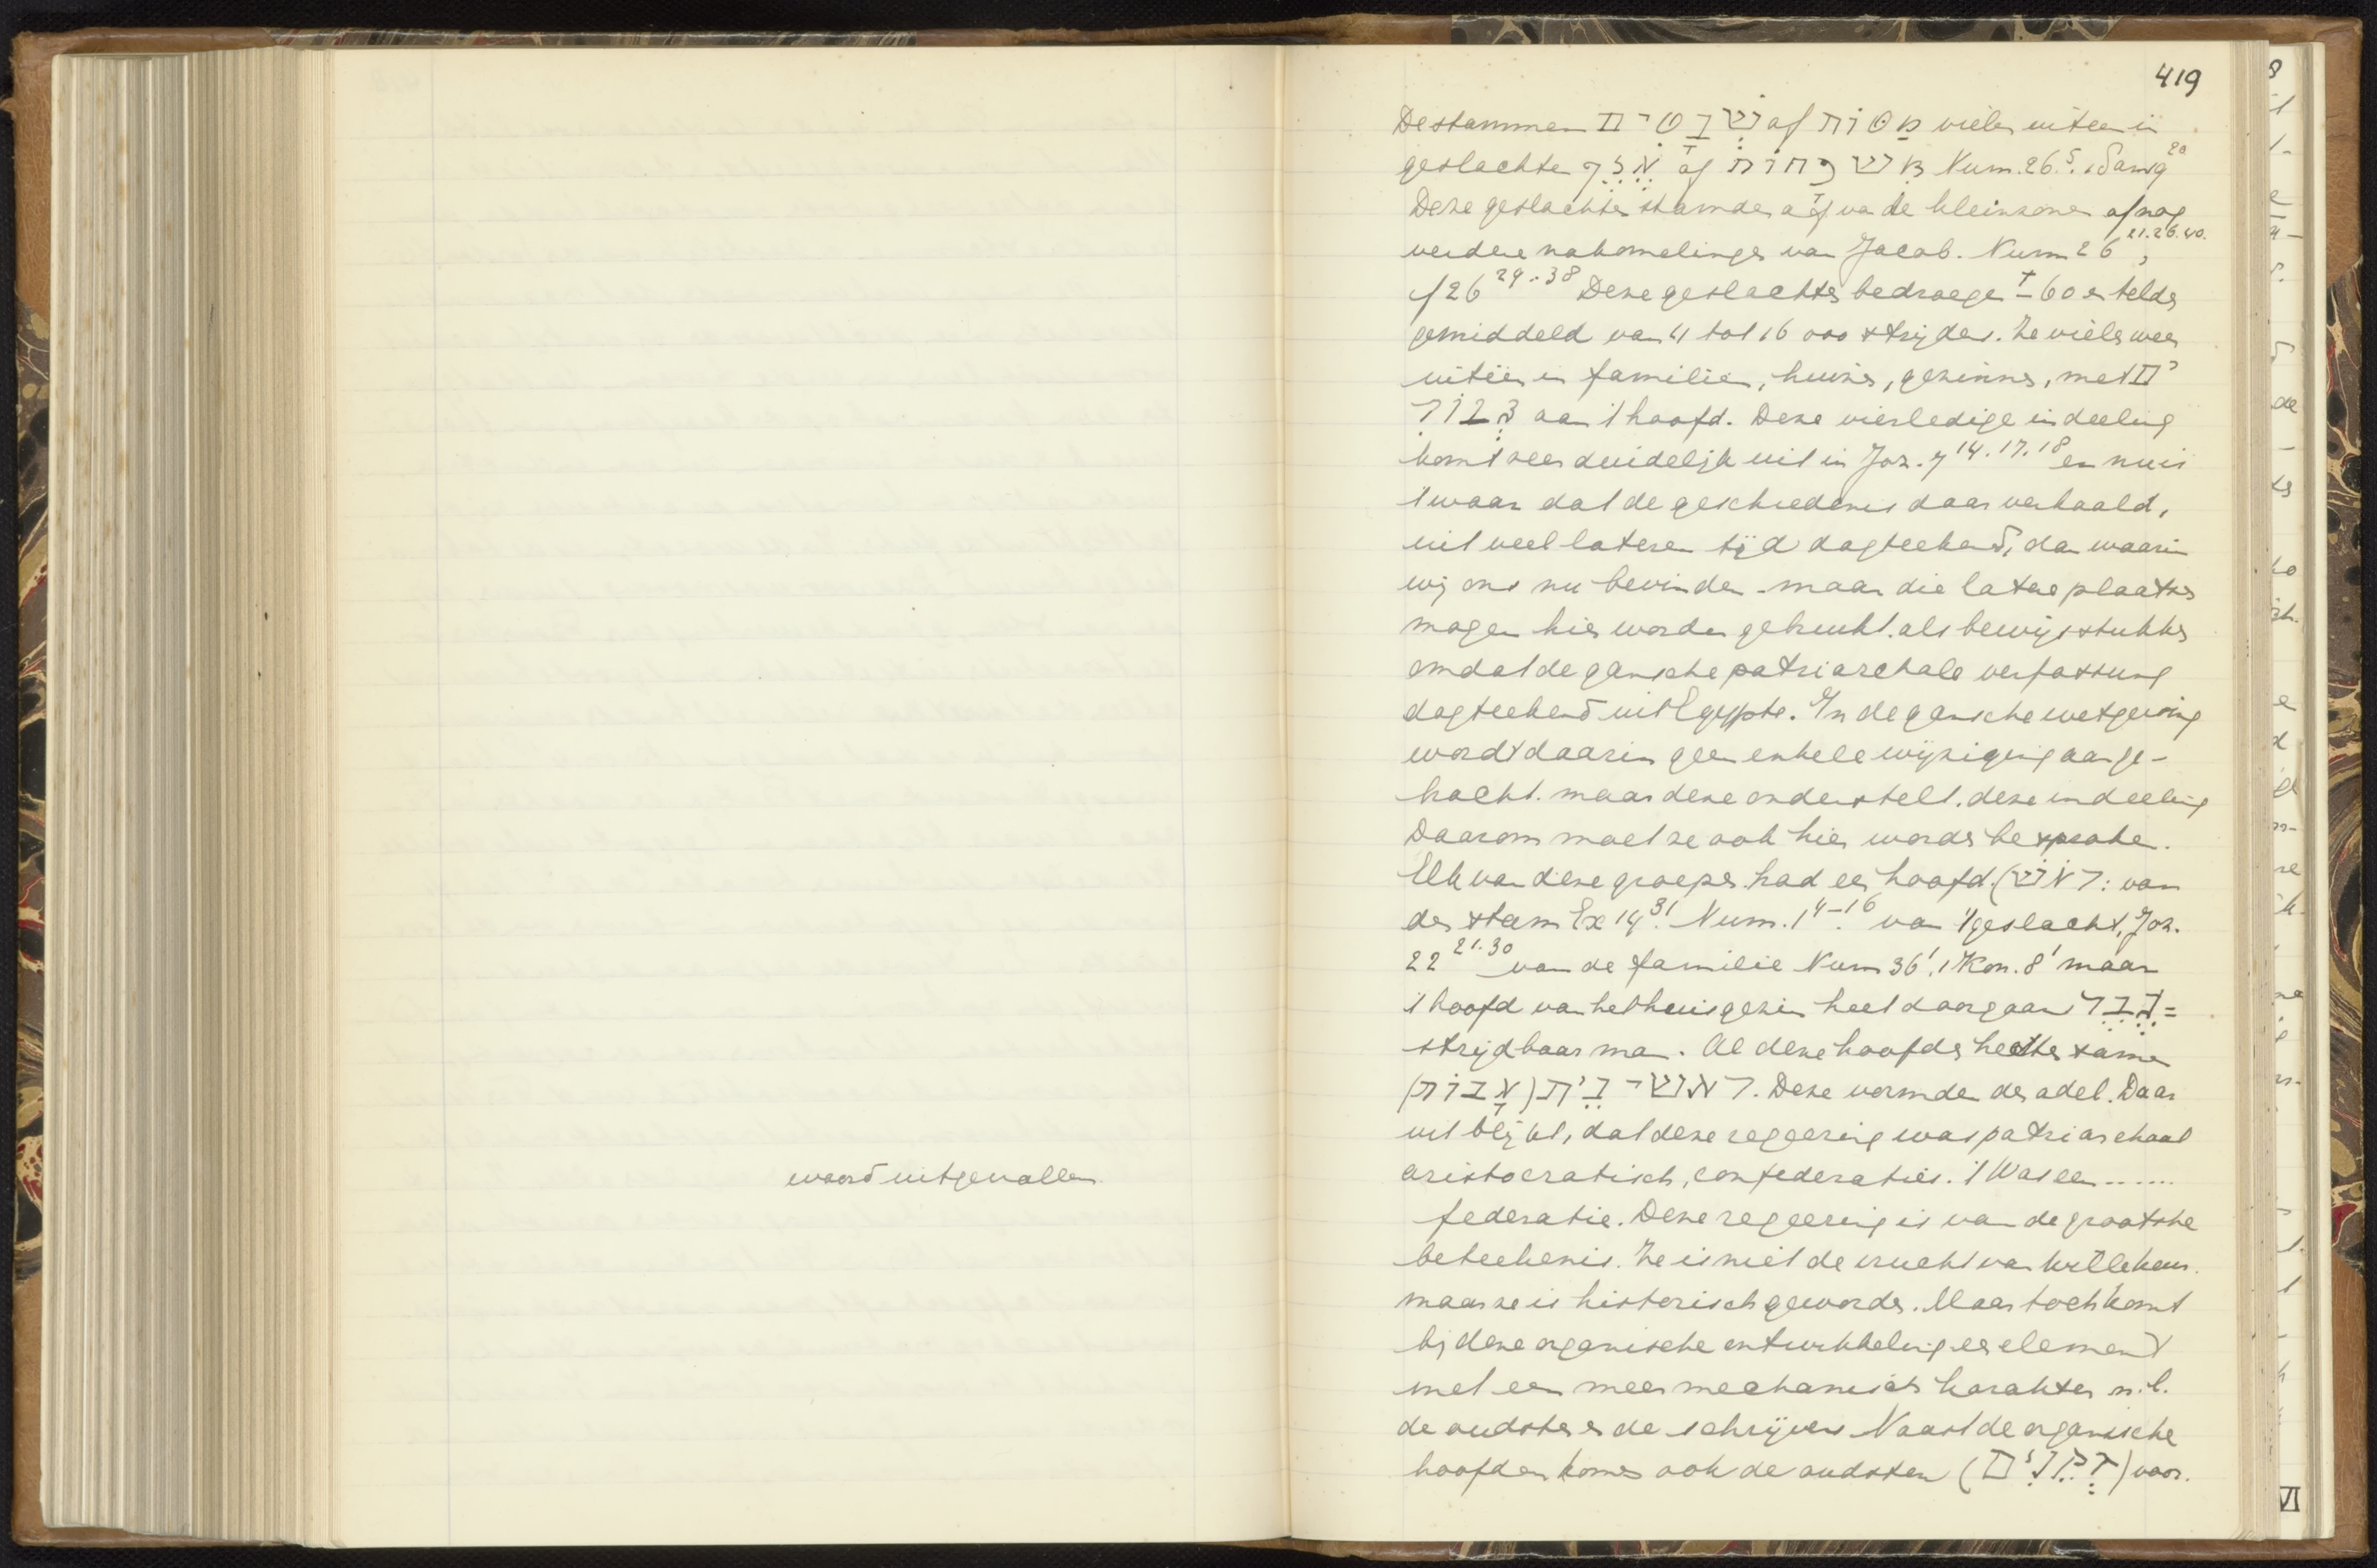 woord uitgevallen
419
De stammen שְׁבָטִים of מַטּוֹת vielen uiteen in
geslachten אֶלֶף of מִשְׁפָּחוֹת Num. 26 5. 1 Sam 9 20
Deze geslachten stamden af van de kleinzonen of nog
verdere nakomelingen van Jacob. Num 26 21.26.40.,
cf 26 29-38 Deze geslachten bedroegen ± 60 en telden
gemiddeld van 4 tot 16 000 strijders. Ze vielen weer
uitéén in familiën, huizen, gezinnen, met
גִּבּוֹרִים aan 't hoofd. Deze vierledige indeeling
komt zeer duidelijk uit in Joz. 7 14.17.18 en nu is
't waar dat de geschiedenis daar verhaald,
uit veel lateren tijd dagteekend, dan waarin
wij ons nu bevinden - maar die latere plaatsen
mogen hier worden gebruikt als bewijsstukken
omdat de gansche patriarchale verfassung
dagteekend uit Egypte. In de gansche wetgeving
wordt daarin geen enkele wijziging aange-
bracht. maar deze onderstelt deze indeeling
Daarom moet ze ook hier worden besproken.
Elk van deze groepen had een hoofd. (רֹאשׁ: van
den stam Ex 14 31. Num. 1 4-16. van 't geslacht, Joz.
22 21.30 van de familie Num 36 1. 1 Kon. 8 1 maar
't hoofd van het huisgezin heet doorgaans גֶּבֶר =
strijdbaar man. Al deze hoofden heetten samen
רָאשֵׁי בֵּית (אָבוֹת). Deze vormden den adel. Daar
uit blijkt, dat deze regeering was patriarchaal
aristocratisch, confederatief. 't Was een ......
federatie. Deze regeering is van de grootste
beteekenis. Ze is niet de vrucht van willekeur.
maar ze is historisch geworden. Maar toch komt
bij deze organische ontwikkeling een element
met een meer mechanisch karakter n.l.
de oudsten en de schrijvers Naast de organische
hoofden komen ook de oudsten (זְקֵנִים) voor.
VI